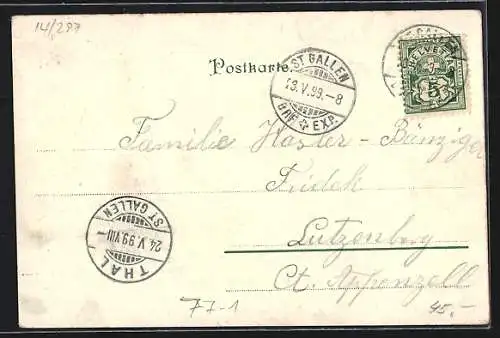 14/297
Postkarte.
ST. GALLEN
23.V.99.-8
BRF. EXP.
HELVETIA
5
Familie Koster-Bänziger
Lutzenberg
Ct. Appenzell
ST. GALLEN
24.V.99.VIII
THAL
77-1
45,-